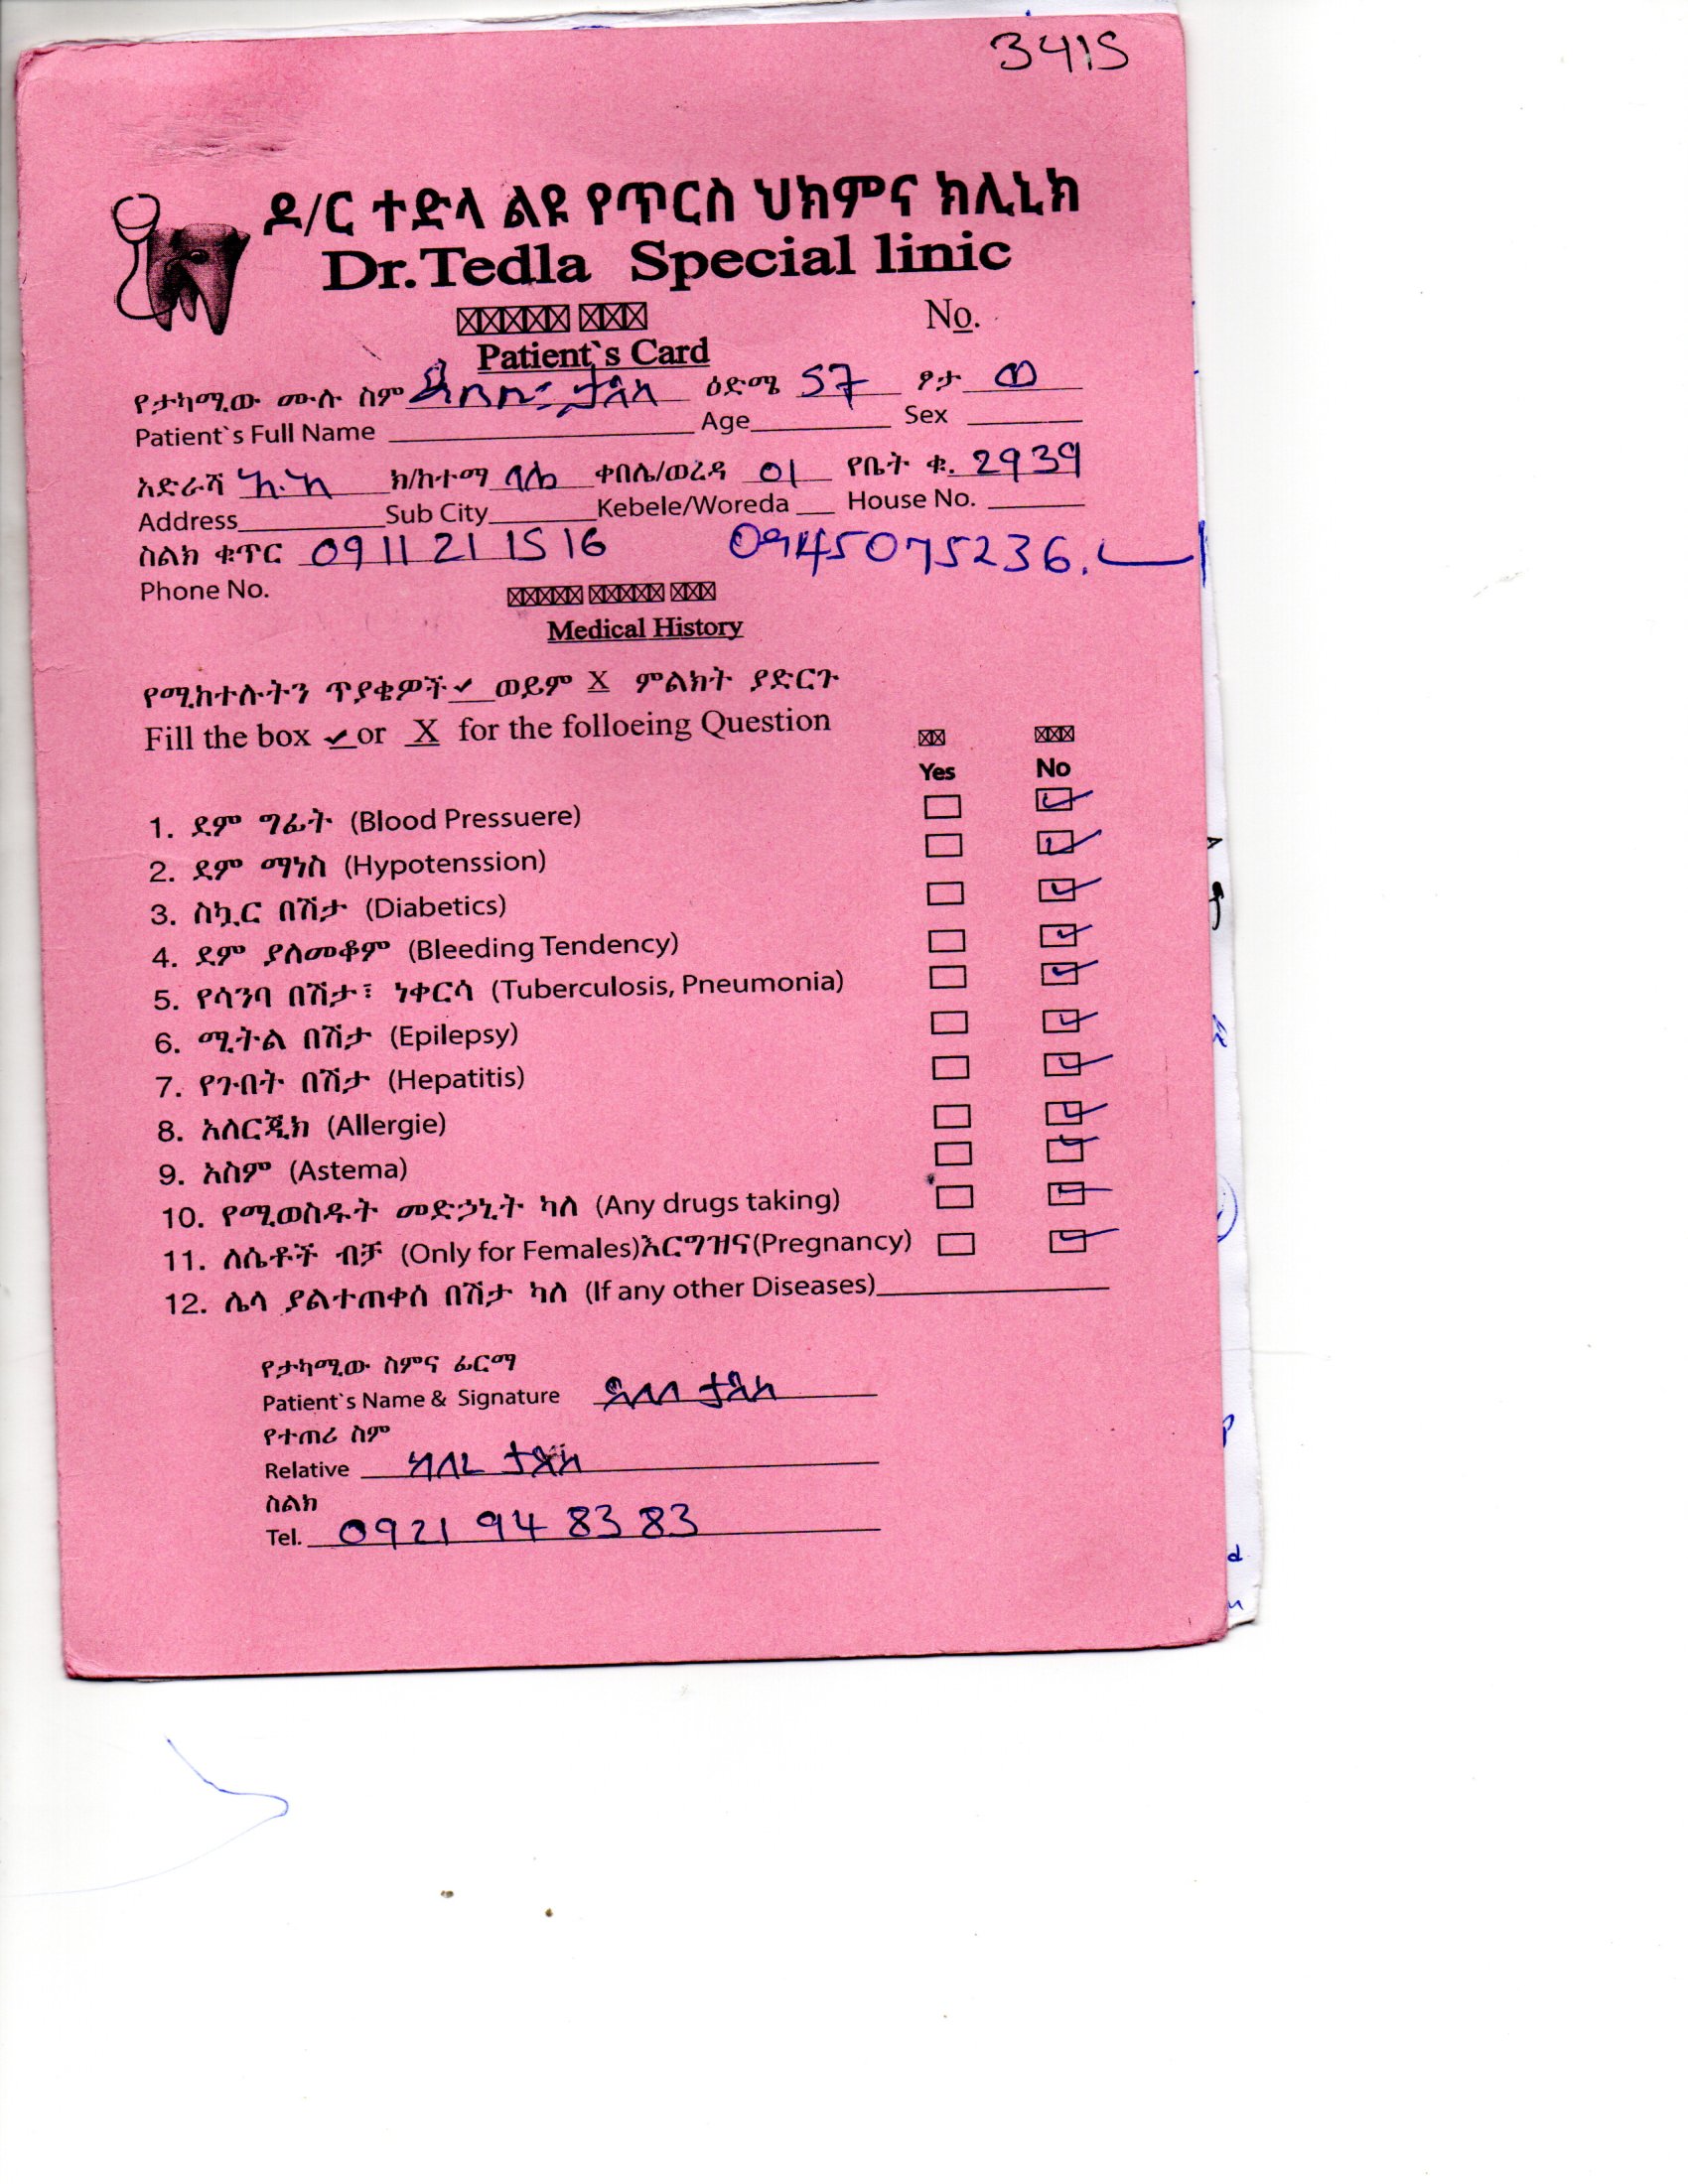 3415
ዶ/ር ተድላ ልዩ የጥርስ ህክምና ክሊኒክ
Dr.Tedla Special linic
No.
Patient`s Card
የታካሚው ሙሉ ስም ታደለ ዕድሜ 57 ፆታ ወ
Patient`s Full Name Age Sex
አድራሻ አ.አ ክ/ከተማ ቦሌ ቀበሌ/ወረዳ 01 የቤት ቁ. 2939
Address Sub City Kebele/Woreda House No.
ስልክ ቁጥር 0911 21 15 16 0945075236.
Phone No.
Medical History
የሚከተሉትን ጥያቄዎች ✓ ወይም X ምልክት ያድርጉ
Fill the box ✓ or X for the folloeing Question
Yes No
1. ደም ግፊት (Blood Pressuere)
2. ደም ማነስ (Hypotenssion)
3. ስኳር በሽታ (Diabetics)
4. ደም ያለመቆም (Bleeding Tendency)
5. የሳንባ በሽታ፣ ነቀርሳ (Tuberculosis, Pneumonia)
6. ሚትል በሽታ (Epilepsy)
7. የጉበት በሽታ (Hepatitis)
8. አለርጂክ (Allergie)
9. አስም (Astema)
10. የሚወስዱት መድኃኒት ካለ (Any drugs taking)
11. ለሴቶች ብቻ (Only for Females)እርግዝና(Pregnancy)
12. ሌላ ያልተጠቀሰ በሽታ ካለ (If any other Diseases)
የታካሚው ስምና ፊርማ
Patient`s Name & Signature ታደለ
የተጠሪ ስም
Relative ታደለ
ስልክ
Tel. 0921 94 83 83